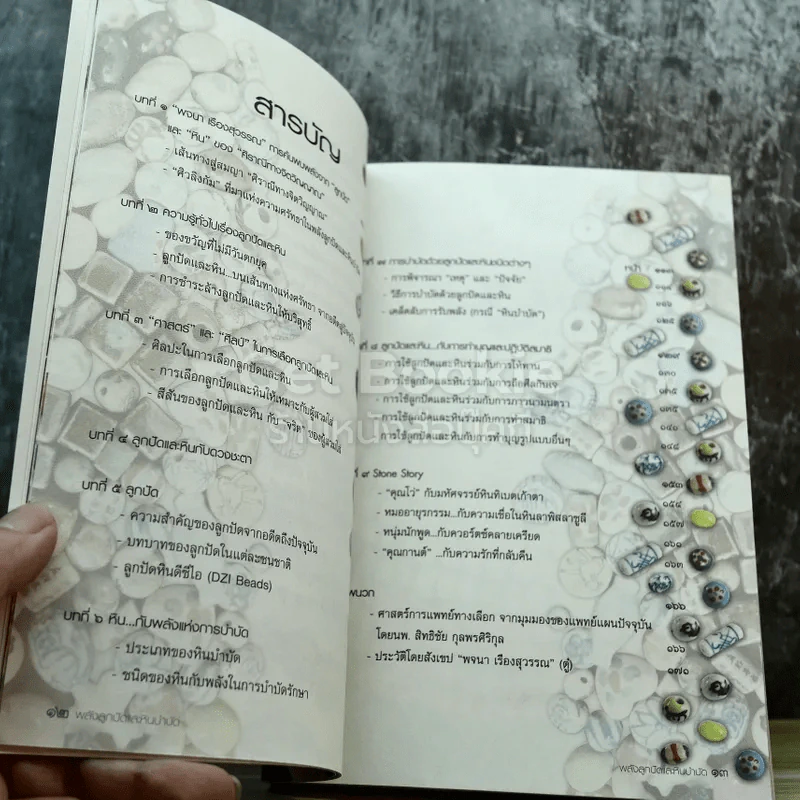 สารบัญ
บทที่ ๑ "พจนา เรืองสุวรรณ" การค้นพบพลังจาก "ลูกปัด"
และ "หิน" ของ "ศิราณีทางจิตวิญญาณ"
- เส้นทางสู่สมญา "ศิราณีทางจิตวิญญาณ"
- "ศิวลึงก์" ที่มาแห่งความศรัทธาในพลังลูกปัดและหิน
บทที่ ๒ ความรู้ทั่วไปเรื่องลูกปัดและหิน
- ของขวัญที่ไม่มีวันตกยุค
- ลูกปัดและหิน...บนเส้นทางแห่งศรัทธา จากอดีต
- การชำระล้างลูกปัดและหินให้บริสุทธิ์
บทที่ ๓ "ศาสตร์" และ "ศิลป์" ในการเลือกลูกปัดและหิน
- ศิลปะในการเลือกลูกปัดและหิน
- การเลือกลูกปัดและหินให้เหมาะกับผู้สวมใส่
- สีสันของลูกปัดและหิน กับ "จริต" ของผู้สวมใส่
บทที่ ๔ ลูกปัดและหินกับดวงชะตา
บทที่ ๕ ลูกปัด
- ความสำคัญของลูกปัดจากอดีตถึงปัจจุบัน
- บทบาทของลูกปัดในแต่ละชนชาติ
- ลูกปัดหินดีซีไอ (DZI Beads)
บทที่ ๖ หิน...กับพลังแห่งการบำบัด
- ประเภทของหินบำบัด
- ชนิดของหินกับพลังในการบำบัดรักษา
๑๒ พลังลูกปัดและหินบำบัด
หน้า
ที่ ๗ การบำบัดด้วยลูกปัดและหินชนิดต่างๆ
- การพิจารณา "เหตุ" และ "ปัจจัย"
- วิธีการบำบัดด้วยลูกปัดและหิน
- เคล็ดลับการรับพลัง (กรณี "หินบำบัด") ๑๒๕
ที่ ๘ ลูกปัดและหิน...กับการทำบุญและปฏิบัติสมาธิ ๑๒๙
- การใช้ลูกปัดและหินร่วมกับการให้ทาน ๑๓๐
- การใช้ลูกปัดและหินร่วมกับการถือศีลกินเจ ๑๓๕
- การใช้ลูกปัดและหินร่วมกับการภาวนามนตรา ๑๓๕
- การใช้ลูกปัดและหินร่วมกับการทำสมาธิ
- การใช้ลูกปัดและหินกับการทำบุญรูปแบบอื่นๆ ๑๔๘
ที่ ๙ Stone Story ๑๕๓
- "คุณโว่" กับมหัศจรรย์หินทิเบตเก้าตา ๑๕๔
- หมออายุรกรรม...กับความเชื่อในหินลาพิสลาซูลี ๑๕๗
- หนุ่มนักพูด...กับควอร์ตซ์คลายเครียด ๑๖๑
- "คุณกานต์" ...กับความรักที่กลับคืน ๑๖๓
ผนวก ๑๖๖
- ศาสตร์การแพทย์ทางเลือก จากมุมมองของแพทย์แผนปัจจุบัน
โดยนพ. สิทธิชัย กุลพรศิริกุล ๑๖๖
- ประวัติโดยสังเขป "พจนา เรืองสุวรรณ" (ตู่) ๑๗๑
พลังลูกปัดและหินบำบัด ๑๓